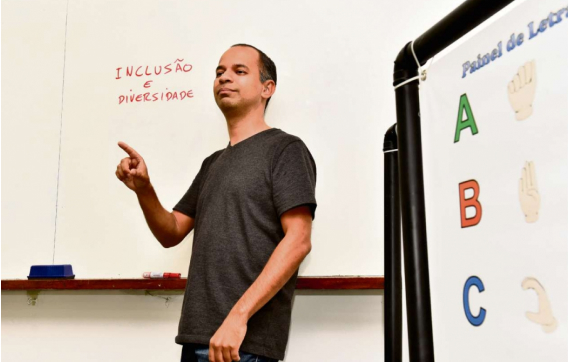 INCLUSÃO
E
DIVERSIDADE
Painel de Letra
A
B
C